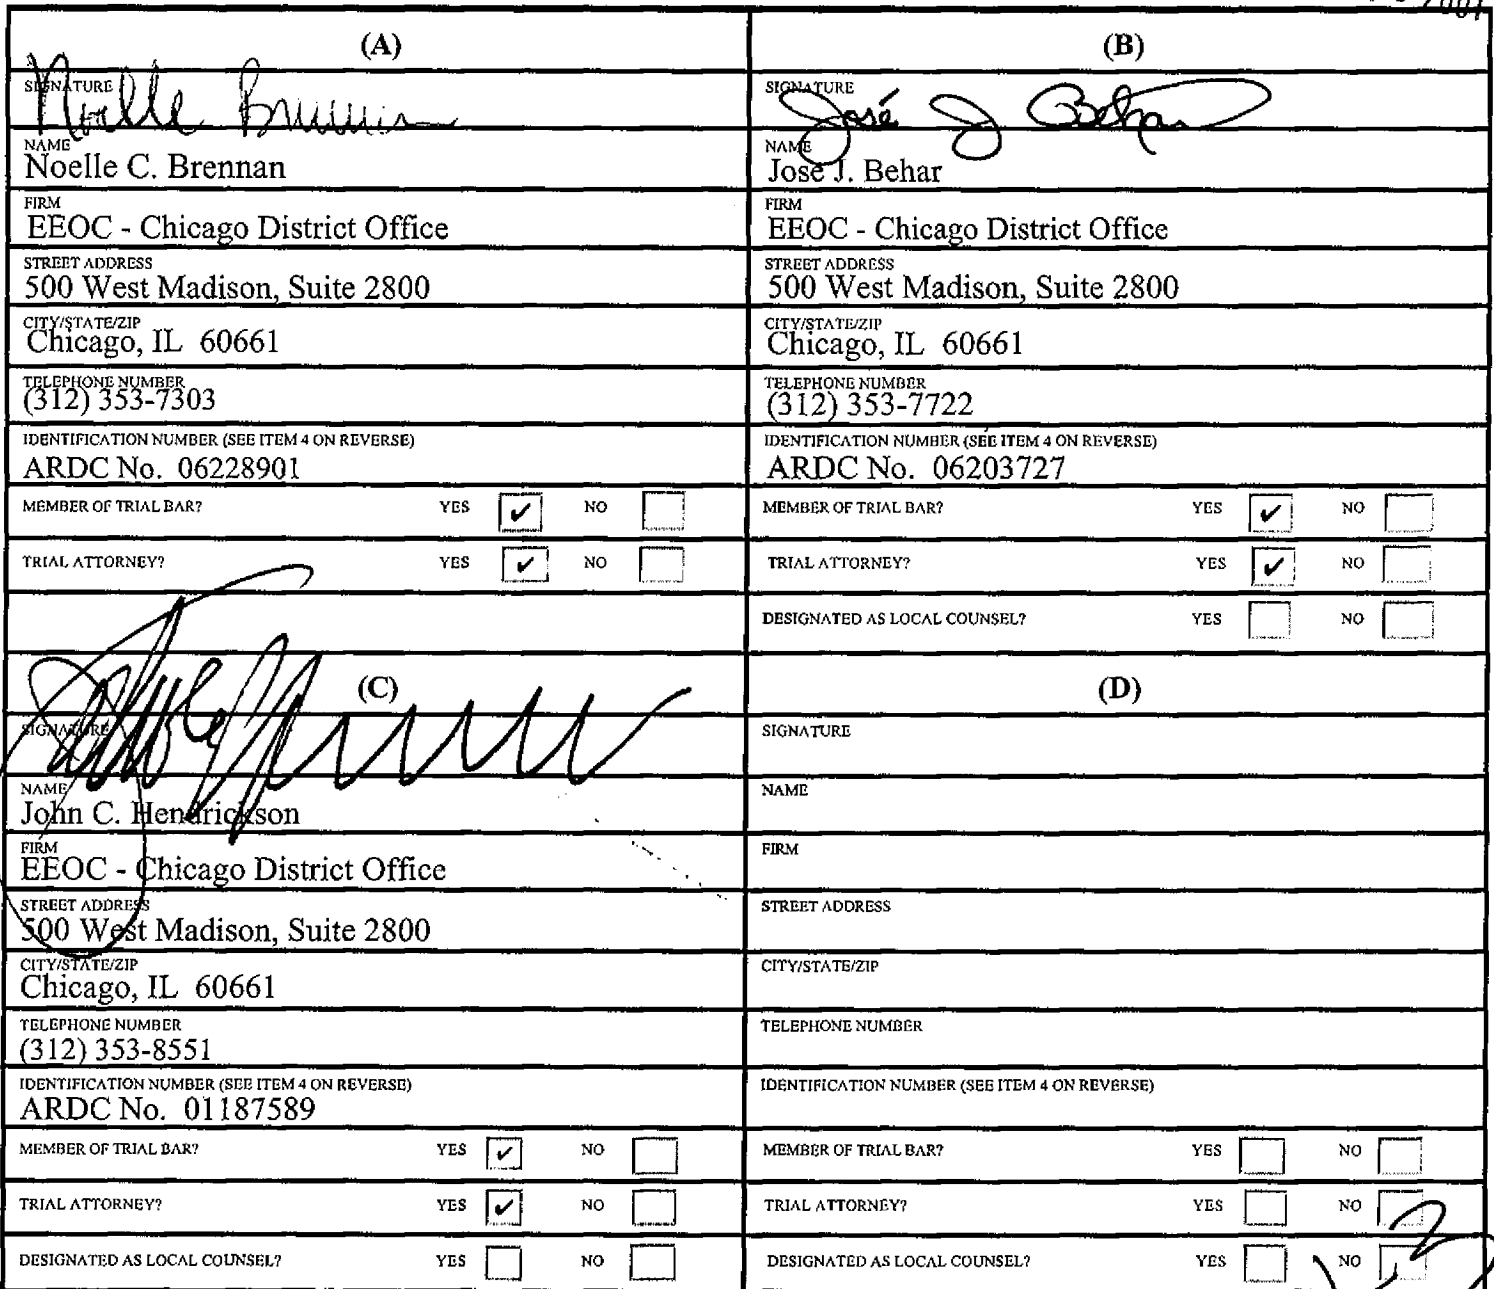 2001
(A)
SIGNATURE
Noelle Brennan
NAME
Noelle C. Brennan
FIRM
EEOC - Chicago District Office
STREET ADDRESS
500 West Madison, Suite 2800
CITY/STATE/ZIP
Chicago, IL 60661
TELEPHONE NUMBER
(312) 353-7303
IDENTIFICATION NUMBER (SEE ITEM 4 ON REVERSE)
ARDC No. 06228901
MEMBER OF TRIAL BAR? YES ✔ NO
TRIAL ATTORNEY? YES ✔ NO
(B)
SIGNATURE
José J Behar
NAME
Jose J. Behar
FIRM
EEOC - Chicago District Office
STREET ADDRESS
500 West Madison, Suite 2800
CITY/STATE/ZIP
Chicago, IL 60661
TELEPHONE NUMBER
(312) 353-7722
IDENTIFICATION NUMBER (SEE ITEM 4 ON REVERSE)
ARDC No. 06203727
MEMBER OF TRIAL BAR? YES ✔ NO
TRIAL ATTORNEY? YES ✔ NO
DESIGNATED AS LOCAL COUNSEL? YES NO
(C)
SIGNATURE
NAME
John C. Hendrickson
FIRM
EEOC - Chicago District Office
STREET ADDRESS
500 West Madison, Suite 2800
CITY/STATE/ZIP
Chicago, IL 60661
TELEPHONE NUMBER
(312) 353-8551
IDENTIFICATION NUMBER (SEE ITEM 4 ON REVERSE)
ARDC No. 01187589
MEMBER OF TRIAL BAR? YES ✔ NO
TRIAL ATTORNEY? YES ✔ NO
DESIGNATED AS LOCAL COUNSEL? YES NO
(D)
SIGNATURE
NAME
FIRM
STREET ADDRESS
CITY/STATE/ZIP
TELEPHONE NUMBER
IDENTIFICATION NUMBER (SEE ITEM 4 ON REVERSE)
MEMBER OF TRIAL BAR? YES NO
TRIAL ATTORNEY? YES NO
DESIGNATED AS LOCAL COUNSEL? YES NO